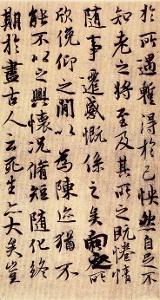 於所遇蹔得於己怏然自足不
知老之將至及其所之既惓情
隨事遷感慨係之矣向之所
欣俛仰之閒以為陳迹猶不
能不以之興懷況脩短隨化終
期於盡古人云死生亦大矣豈